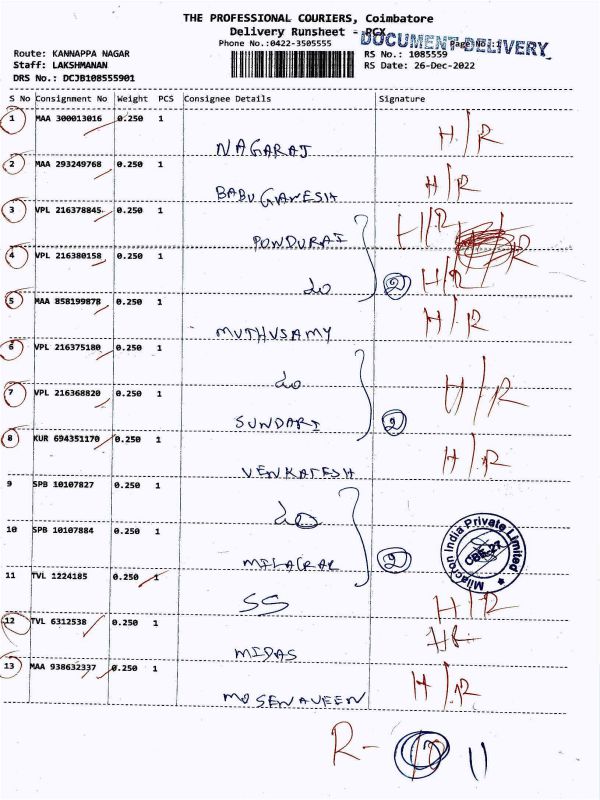 THE PROFESSIONAL COURIERS, Coimbatore
Delivery Runsheet - PCX
DOCUMENT DELIVERY
Phone No.:0422-3505555
Page No.:1
Route: KANNAPPA NAGAR
RS No.: 1085559
Staff: LAKSHMANAN
RS Date: 26-Dec-2022
DRS No.: DCJB108555901
S No Consignment No Weight PCS Consignee Details Signature
1 MAA 300013016 0.250 1
NAGARAJ H/R
2 MAA 293249768 0.250 1
BABU GANESH H/R
3 VPL 216378845 0.250 1
PONDURAI H/R
4 VPL 216380158 0.250 1
do 2 H/R
5 MAA 858199878 0.250 1
MUTHUSAMY H/R
6 VPL 216375180 0.250 1
do
7 VPL 216368820 0.250 1
SUNDARI 2 H/R
8 KUR 694351170 0.250 1
VENKATESH H/R
9 SPB 10107827 0.250 1
do
10 SPB 10107884 0.250 1
2
Milacron India Private Limited
CBE-27
11 TVL 1224185 0.250 1
SS H/R
12 TVL 6312538 0.250 1
MIDAS
13 MAA 938632337 0.250 1
H/R
R- 11